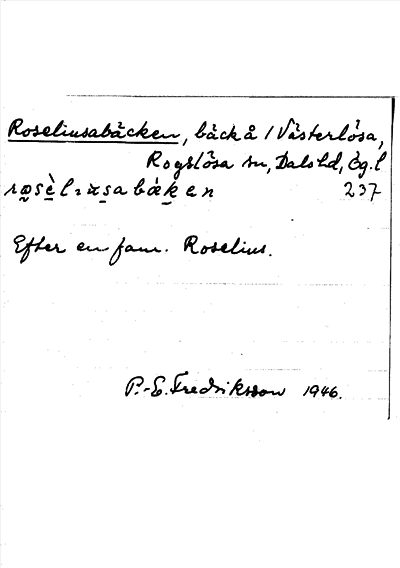 Roseliusabäcken, bäck å Västerlösa,
Rogslösa sn, Dals hd, Ög. l
237
Efter en fam. Roselius.
P.-E. Fredriksson 1946.